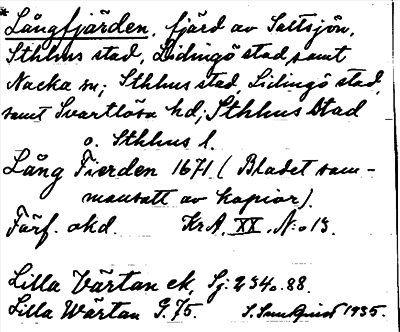 *Långfjärden, fjärd av Saltsjön,
Sthlms stad, Lidingö stad samt
Nacka sn; Sthlms stad, Lidingö stad,
samt Svartlösa hd; Sthlms stad
o. Sthlms l.
Lång Fierden 1671. (Bladet sam-
mansatt av kopior).
Förf. okd. KrA, XX, N:o 13.
Lilla Värtan ek, Sj: 234o.88.
Lilla Wärtan G.75. 1935.